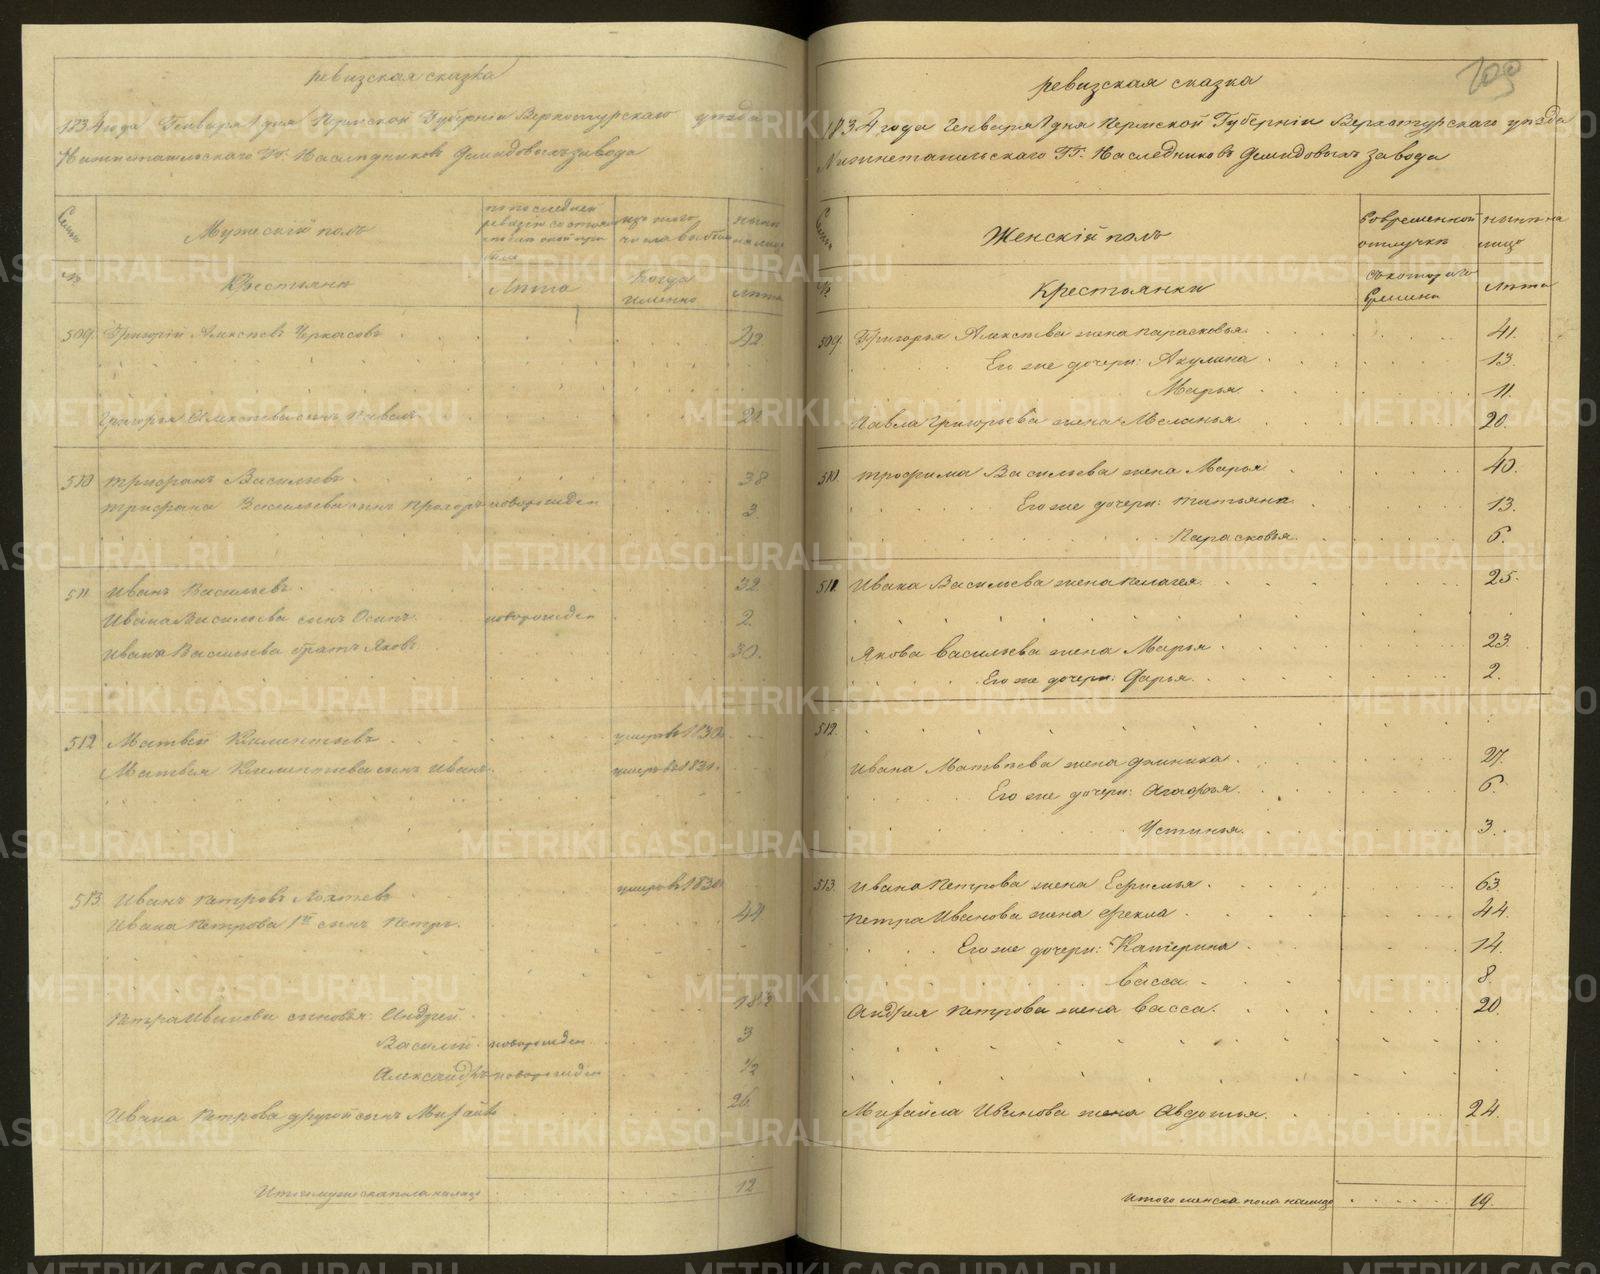 ревизская сказка
1834 года Генваря 1 дня Пермской Губерніи Верхотурскаго уезда
Нижнетагильскаго ГГ. Наследниковъ Демидовыхъ завода
Семьи
Мужескій полъ
по последней ревизіи состояло
изъ того числа выбыло
ныне на лицо
№
Крестьяне
Лета
Когда именно
Лета
509. Григорій Алексеевъ Черкасовъ 42
Григорья Алексеева сынъ Павелъ 21
510 Трифанъ Васильевъ 38
Трифана Васильева сынъ Прохоръ новорожден 3
511 Иванъ Васильевъ 32
Ивана Васильева сынъ Осипъ новорожден 2
Ивана Васильева братъ Яковъ 30.
512 Матвей Климентьевъ умеръ въ 1830
Матвея Климентьева сынъ Иванъ умеръ въ 1831.
513 Иванъ Петровъ Лохтевъ умеръ въ 1830
Ивана Петрова 1й сынъ Петръ. 44
Петра Иванова сыновья: Андрей
Василій новорожден 3
Александръ новорожден 1/2
Ивана Петрова другой сынъ Михайло 26
Итого мужеска пола налицо 12
109
ревизская сказка
1834 года Генваря 1 дня Пермской Губерніи Верхотурскаго уезда
Нижнетагильскаго ГГ. Наследниковъ Демидовыхъ завода
Семьи
Женскій полъ
Во временной отлучке
ныне на лицо
№
Крестьянки
Съ котораго времени
Лета
509. Григорья Алексеева жена Парасковья 41.
Его же дочери: Акулина 13.
Марья 11.
Павла Григорьева жена Меланья 20.
510. Трофима Васильева жена Марья 40.
Его же дочери: Татьяна 13.
Парасковья 6.
511. Ивана Васильева жена Пелагея 25.
Якова Васильева жена Марья 23.
Его же дочери: Дарья 2.
512.
Ивана Матвеева жена 27.
Его же дочери: Агафья 6.
Устинья 3.
513. Ивана Петрова жена Ефимья 63.
Петра Иванова жена Фекла 44.
Его же дочери: Катерина 14.
Васса 8.
Андрея Петрова жена Васса. 20.
Михайла Иванова жена Авдотья. 24.
Итого женска пола налицо 19.
METRIKI.GASO-URAL.RU